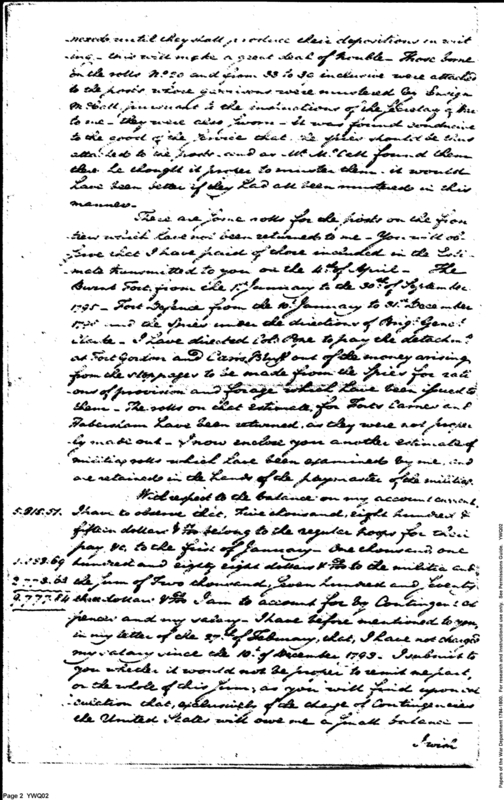 until they shall produce their depositions in writ
ing - this will make a great deal of trouble - Those borne
on the rolls No 20 and from 33 to 36 inclusive were attached
to the posts whose garrisons were mustered by Ensign
McCall pursuant to the instructions of the Secretary of War
to me - they were also sworn - it was found conducive
to the good of the service that the spies should be thus
attached to the posts - and as Mr. McCall found them
there he thought it proper to muster them - it would
have been better if they had all been mustered in this
manner -
There are some rolls for the posts on the fron
tiers which have not been returned to me - You will ob
serve that I have paid of those included in the Esti
mate transmitted to you on the 4th of April - The
Burnt Fort, from the 1st January to the 30th of September
1795 - Fort Defence from the 10 January to 31st December
and the spies under the directions of Brigr Genl
Clarke - I have directed Colo Pope to pay the detachmts
at Fort Gordon and Carrs Bluff out of the money arising
from the stoppages to be made from the spies for rati
ons of provision and forage which have been issued to
them - The rolls on that estimate, for Forts Carnes and
Habersham have been returned, as they were not proper
ly made out - I now enclose you another estimate of
militia rolls which have been examined by me, and
are retained in the hands of the paymaster of the militia.
With respect to the balance on my account current
5.815.57. I have to observe that, Five thousand, eight hundred &
fifteen dollars & belong to the regular troops for their
pay &c. to the first of January - One thousand one
hundred and eighty eight dollars & to the militia and
2.773.63 the sum of Two thousand, Seven hundred and Seventy
9.777.84 three dollars & I am to account for by Contingent ex
pences and my salary - I have before mentioned to you,
in my letter of the 27th of February, that, I have not charged
my salary since the 10th of December 1793. I submit to
you whether it would not be proper to remit me part,
or the whole of this sum, as you will find upon ex
amination that, exclusively of the charge of Contingencies
the United States will owe me a small balance -
I wish
Page 2 YWQ02
Papers of the War Department 1784-1800. For research and instructional use only. See Permissions Guide. YWQ02